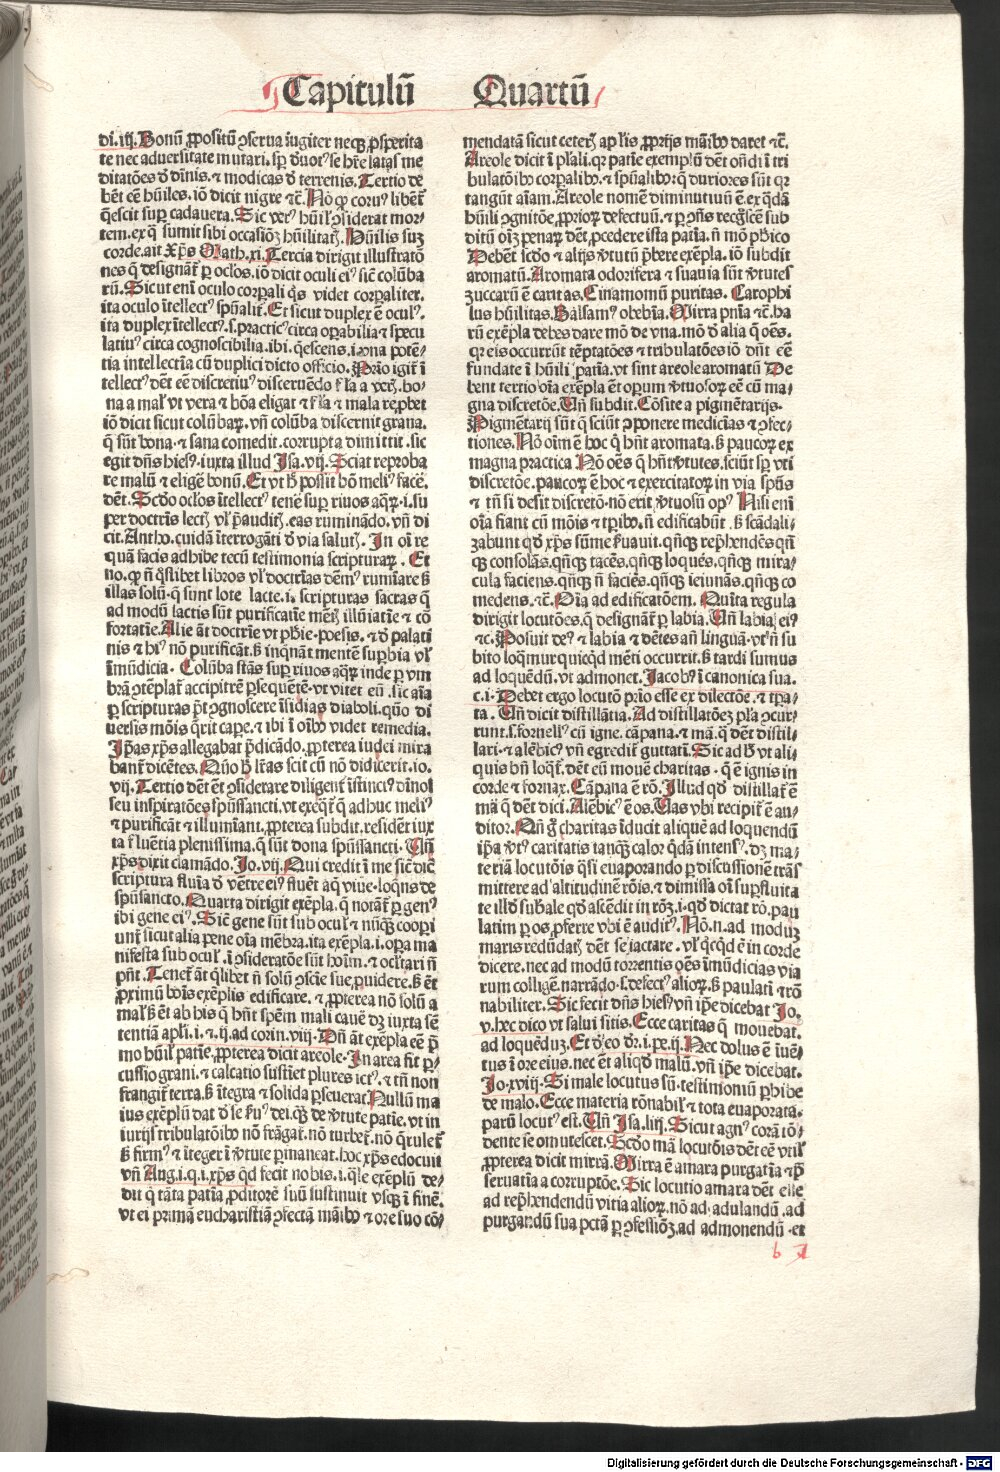 Capitulū Quartū
di. iij. Bonū ꝓpositū ꝯserua iugiter neqꝫ ꝓsperita
te nec aduersitate mutari. sꝑ deuotꝰ se hr̄e latas me
ditatōes ꝺ diuinis. ⁊ modicas ꝺ terrenis. Tercio de
bēt eē hūiles. iō dicit nigre ⁊c̄. Nō ꝙ coruꝰ libēt̄
q̄escit suꝑ cadauera. Sic verꝰ hūil' ꝯsiderat mor⸗
tem. ex q̄ sumit sibi occasiōꝫ hūilitatꝭ. Hūilis suꝫ
corde. ait Xp̄s Math. xi. Tercia dirigit illustratō
nes q̄ designāt̄ ꝑ oc̄los. iō dicit oculi eiꝰ sic̄ colūba
rū. Sicut eni oculo corꝑali q̄s videt corꝑaliter.
ita oculo ītellectꝰ spūalit̄. Et sicut duplex ē oculꝰ.
ita duplex ītellectꝰ. s. practicꝰ circa oꝑabilia ⁊ specu
latiuꝰ circa cognoscibilia. ibi. q̄escens. i. vna potē⸗
tia intellectīa cū duplici dicto officio. Prīo igit̄ ī
tellectꝰ dēt eē discretiuꝰ discernēdo fl̄a a verꝭ. bo⸗
na a mal' vt vera ⁊ bōa eligat ⁊ fl̄a ⁊ mala rep̄bet
iō dicit sicut colūbaꝝ. vn̄ colūba discernit grana.
q̄ sūt bona. ⁊ sana comedit. corrupta dimittit. sic
egit dn̄s hiesꝰ. iuxta illud Isa. vij. Sciat reproba
re malū ⁊ eligē bonū. Et vt h̄ possit hō meliꝰ facē.
dēt. Scd̄o oc̄los ītellectꝰ tene' suꝑ riuos aq̄ꝝ. i. su
per doctrīs lectꝭ vl' p̄auditꝭ. eas ruminādo. vn̄ di
cit. Antho. cuidā īterrogāti ꝺ via salutꝭ. In oī re
quā facis adhibe tecū testimonia scripturaꝝ. Et
no. ꝙ n̄ q̄slibet libros vl' doctrīas dēmꝰ rumīare sꝫ
illas solū. q̄ sunt lote lacte. i. scripturas sacras q̄
ad modū lactis sūt purificatīe mētꝭ illūiatīe ⁊ cō
fortatīe. Alie āt doctrīe vt ph̄ie. poesis. ⁊ ꝺ palati
nis ⁊ hiꝰ nō purificāt. sꝫ inq̄nāt mentē suꝑbia vl'
īmūdicia. Colūba stās suꝑ riuos aq̄ꝝ inde ꝑ vm
brā ꝯtēplat̄ accipitrē ꝑsequētē. vt vitet eū. sic aīa
ꝑ scripturas p̄t ꝯgnoscere īsidias diaboli. quō di
uersis mōis q̄rit caꝑe. ⁊ ibi ī oībꝰ videt remedia.
Ip̄as xp̄s allegabat p̄dicādo. ꝓpterea iudei mira
banī̄ dicētes. Quō h̄ l̄ras scit cū nō didicerit. io.
vij. Tertio dēt ēt ꝯsiderare diligent̄ īstīncꝰ diuīol
seu inspiratōes spūssancti. vt exeq̄t̄ q̄ adhuc meliꝰ
⁊ purificāt ⁊ illumīant. ꝓpterea subdit. residēt iux
ta fluētīa plenissima. q̄ sūt dona spūssancti. Vn̄
xp̄s dixit clamādo. Jo. vij. Qui credit ī me sic̄ dic̄
scriptura fluīa ꝺ vētre eiꝰ fluēt aq̄ viue. loq̄ns de
spūsancto. Quarta dirigit exēpla. q̄ notāt̄ ꝑ genꝰ
ibi gene eiꝰ. Sic̄ gene sūt sub ocul' ⁊ nūq̄ꝫ coopi
unt̄ sicut alia pene oīa mēbra. ita exēpla. i. oꝑa ma
nifesta sub ocul'. i ꝯsideratōe sūt hoīm. ⁊ oc̄ltari n̄
pn̄t. Tenet̄ āt q̄libet n̄ solū ꝯscīe sue ꝓuidere. sꝫ ēt
ꝓximū bōis exēplis edificare. ⁊ ꝓpterea nō solū a
mal' sꝫ ēt ab his q̄ hn̄t spēm mali cauē dꝫ iuxta sē
tentiā apl̄i. i. ⁊. ij. ad corin. viij. Dn̄t āt exēpla eē p̄
mo hūil' patīe. ꝓpterea dicit areole. In area fit ꝑ⸗
cussio grani. ⁊ calcatio sustīet plures ictꝰ. ⁊ tn̄ non
frangit̄ terra. sꝫ ītegra ⁊ solida ꝑseuerat. Nullū ma
ius exēplū dat̄ ꝺ se ẜuꝰ dei. q̄ꝫ de v̄tute patīe. vt in
iurijs tribulatōibꝰ nō frāgat̄. nō turbet̄. nō q̄rulet̄
sꝫ firmꝰ ⁊ īteger ī v̄tute ꝑmaneat. hoc xp̄s edocuit
vn̄ Aug. i. q. i. xp̄s qd̄ fecit nobis. i. q̄le exēplū de⸗
dit q̄ tāta patīa ꝓditorē suū sustinuit vsqꝫ ī finē.
vt ei primā eucharistiā ꝯfectā māibꝰ ⁊ ore suo cō⸗
mendatā sicut ceterꝭ ap̄lis ꝓprijs māibꝰ daret ⁊c̄.
Areole dicit ī pl̄ali. qꝛ patīe exemplū dēt on̄di ī tri
bulatōibꝰ corꝑalibꝰ. ⁊ spūalibꝰ. q̄ duriores sūt qꝛ
tangūt aīam. Areole nomē diminutiuū ē. ex q̄dā
hūili ꝯgnitōe ꝓprioꝝ defectuū. ⁊ ꝑ ꝯn̄s recḡscē sub
ditū oīꝫ penaꝝ dēt ꝓcedere ista patīa. n̄ mō ph̄ico
Debēt scd̄o ⁊ alijs v̄tutū p̄bere exēpla. iō subdit
aromatū. Aromata odorifera ⁊ suauia sūt v̄tutes
zuccarū ē caritas. Cinamomū puritas. Carophi
lus hūilitas. Balsamꝰ obedīa. Mirra pn̄ia ⁊c̄. ha
rū exēpla debes dare mō de vna. mō ꝺ alia q̄ oēs.
qꝛ eis occurrūt tēptatōes ⁊ tribulatōes iō dn̄t eē
fundate ī hūili patīa. vt sint areole aromatū. De
bent tertio oīa exēpla ēt oꝑum v̄tuosoꝝ eē cū ma⸗
gna discretōe. Vn̄ subdit. Cōsite a pigmētarijs.
Pigmētarij sūt q̄ sciūt ꝯponere medicīas ⁊ ꝯfec⸗
tiones. Nō oīm ē hoc q̄ hn̄t aromata. sꝫ paucoꝝ ex
magna practica. Nō oēs q̄ hn̄t v̄tutes. sciūt sꝑ vti
discretōe. paucoꝝ ē hoc ⁊ exercitatoꝝ in via spūs
⁊ tn̄ si desit discretō. nō erit v̄tuosū opꝰ. Nisi eni
oīa fiant cū mōis ⁊ tꝑibꝰ. n̄ edificabūt. sꝫ scādali⸗
zabunt qd̄ xp̄s sūme ẜuauit. qn̄qꝫ rep̄hendēs qn̄
qꝫ consolās. qn̄qꝫ tacēs. qn̄qꝫ loquēs. qn̄qꝫ mira⸗
cula faciens. qn̄qꝫ n̄ faciēs. qn̄qꝫ ieiunās. qn̄qꝫ co
medens. ⁊c̄. Oīa ad edificatōem. Quīta regula
dirigit locutōes. q̄ designāt̄ ꝑ labia. Vn̄ labia eiꝰ
⁊c. Posuit deꝰ ⁊ labia ⁊ dētes an̄ linguā. vt n̄ su
bito loq̄mur quicq̄d mēti occurrit. sꝫ tardi simus
ad loquēdū. vt admonet. Jacobꝰ ī canonica sua.
c. i. Debet ergo locutō prīo esse ex dilectōe. ⁊ tꝑa⸗
ta. Vn̄ dicit distillātia. Ad distillatōeꝫ pl̄a ꝯcur⸗
runt. s. fornellꝰ cū igne. cāpana. ⁊ mā. q̄ dēt distil⸗
lari. ⁊ alēbicꝰ vn̄ egredit̄ guttatī. Sic ad h̄ vt ali⸗
quis bn̄ loq̄t̄. dēt eū mouē charitas. q̄ ē ignis in
corde ⁊ fornax. Cāpana ē rō. Illud qd̄ distillat̄ ē
mā q̄ dēt dici. Alēbicꝰ ē os. Vas vbi recipit̄ ē au⸗
ditor. Qn̄ g̊ charitas īducit aliquē ad loquendū
ip̄a v̄tꝰ caritatis tanq̄ꝫ calor q̄dā intensꝰ. dꝫ ma⸗
teriā locutōis q̄si euaporando ꝑ discussionē trās
mittere ad altitudinē rōis. ⁊ dimissa oī suꝑfluita
te illd̄ sub̄ale qd̄ ascēdit in rōꝫ. i. qd̄ dictat rō. pau
latim ꝑ os ꝓferre vbi ē auditꝰ. Nō. n. ad moduꝫ
maris redūdatꝭ dēt se iactare. vl' q̄cqd̄ ē in corde
dicere. nec ad modū torrentis oēs īmūdicias via
rum colligē. narrādo. s. defectꝰ alioꝝ. sꝫ paulatī ⁊ rō
nabiliter. Sic fecit dn̄s hiesꝰ. vn̄ ip̄e dicebat Jo.
v. hec dico vt salui sitis. Ecce caritas q̄ mouebat.
ad loquēduꝫ. Et ꝺ eo dr̄. i. pe. ij. Nec dolus ē iuē⸗
tus ī ore eius. nec ēt aliqd̄ malū. vn̄ ip̄e dicebat.
Jo. xviij. Si male locutus sū. testimoniū ꝑhibe
de malo. Ecce materia rōnabil' ⁊ tota euaporata.
parū locutꝰ est. Vn̄ Isa. liij. Sicut agnꝰ corā tō⸗
dente se omutescet. Scd̄o mā locutōis dēt eē vtil'
ꝓpterea dicit mirrā. Mirra ē amara purgatīa ⁊ p̄
seruatīa a corruptōe. Sic locutio amara dēt esse
ad rep̄hendendū vitia alioꝝ. nō ad adulandū. ad
purgandū sua pctā ꝑ ꝯfessiōꝫ. ad admonendū. et
b
Digitalisierung gefördert durch die Deutsche Forschungsgemeinschaft - DFG